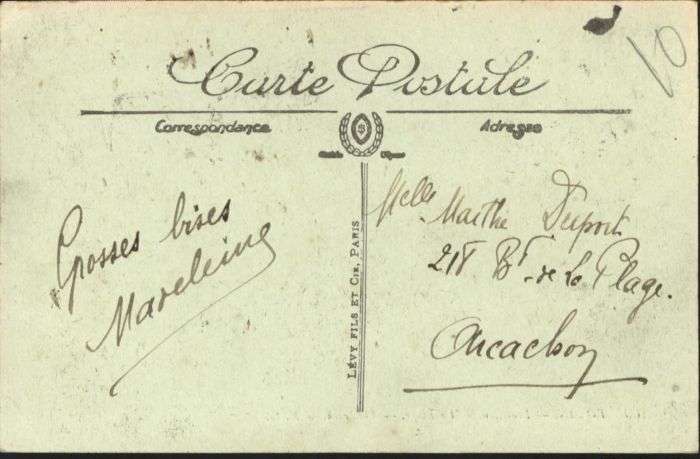 10
Carte Postale
Correspondance
Adresse
Grosses bises
Madeleine
LÉVY FILS ET CIE, PARIS
Melle Marthe Duport
218 Bd de la Plage.
Arcachon